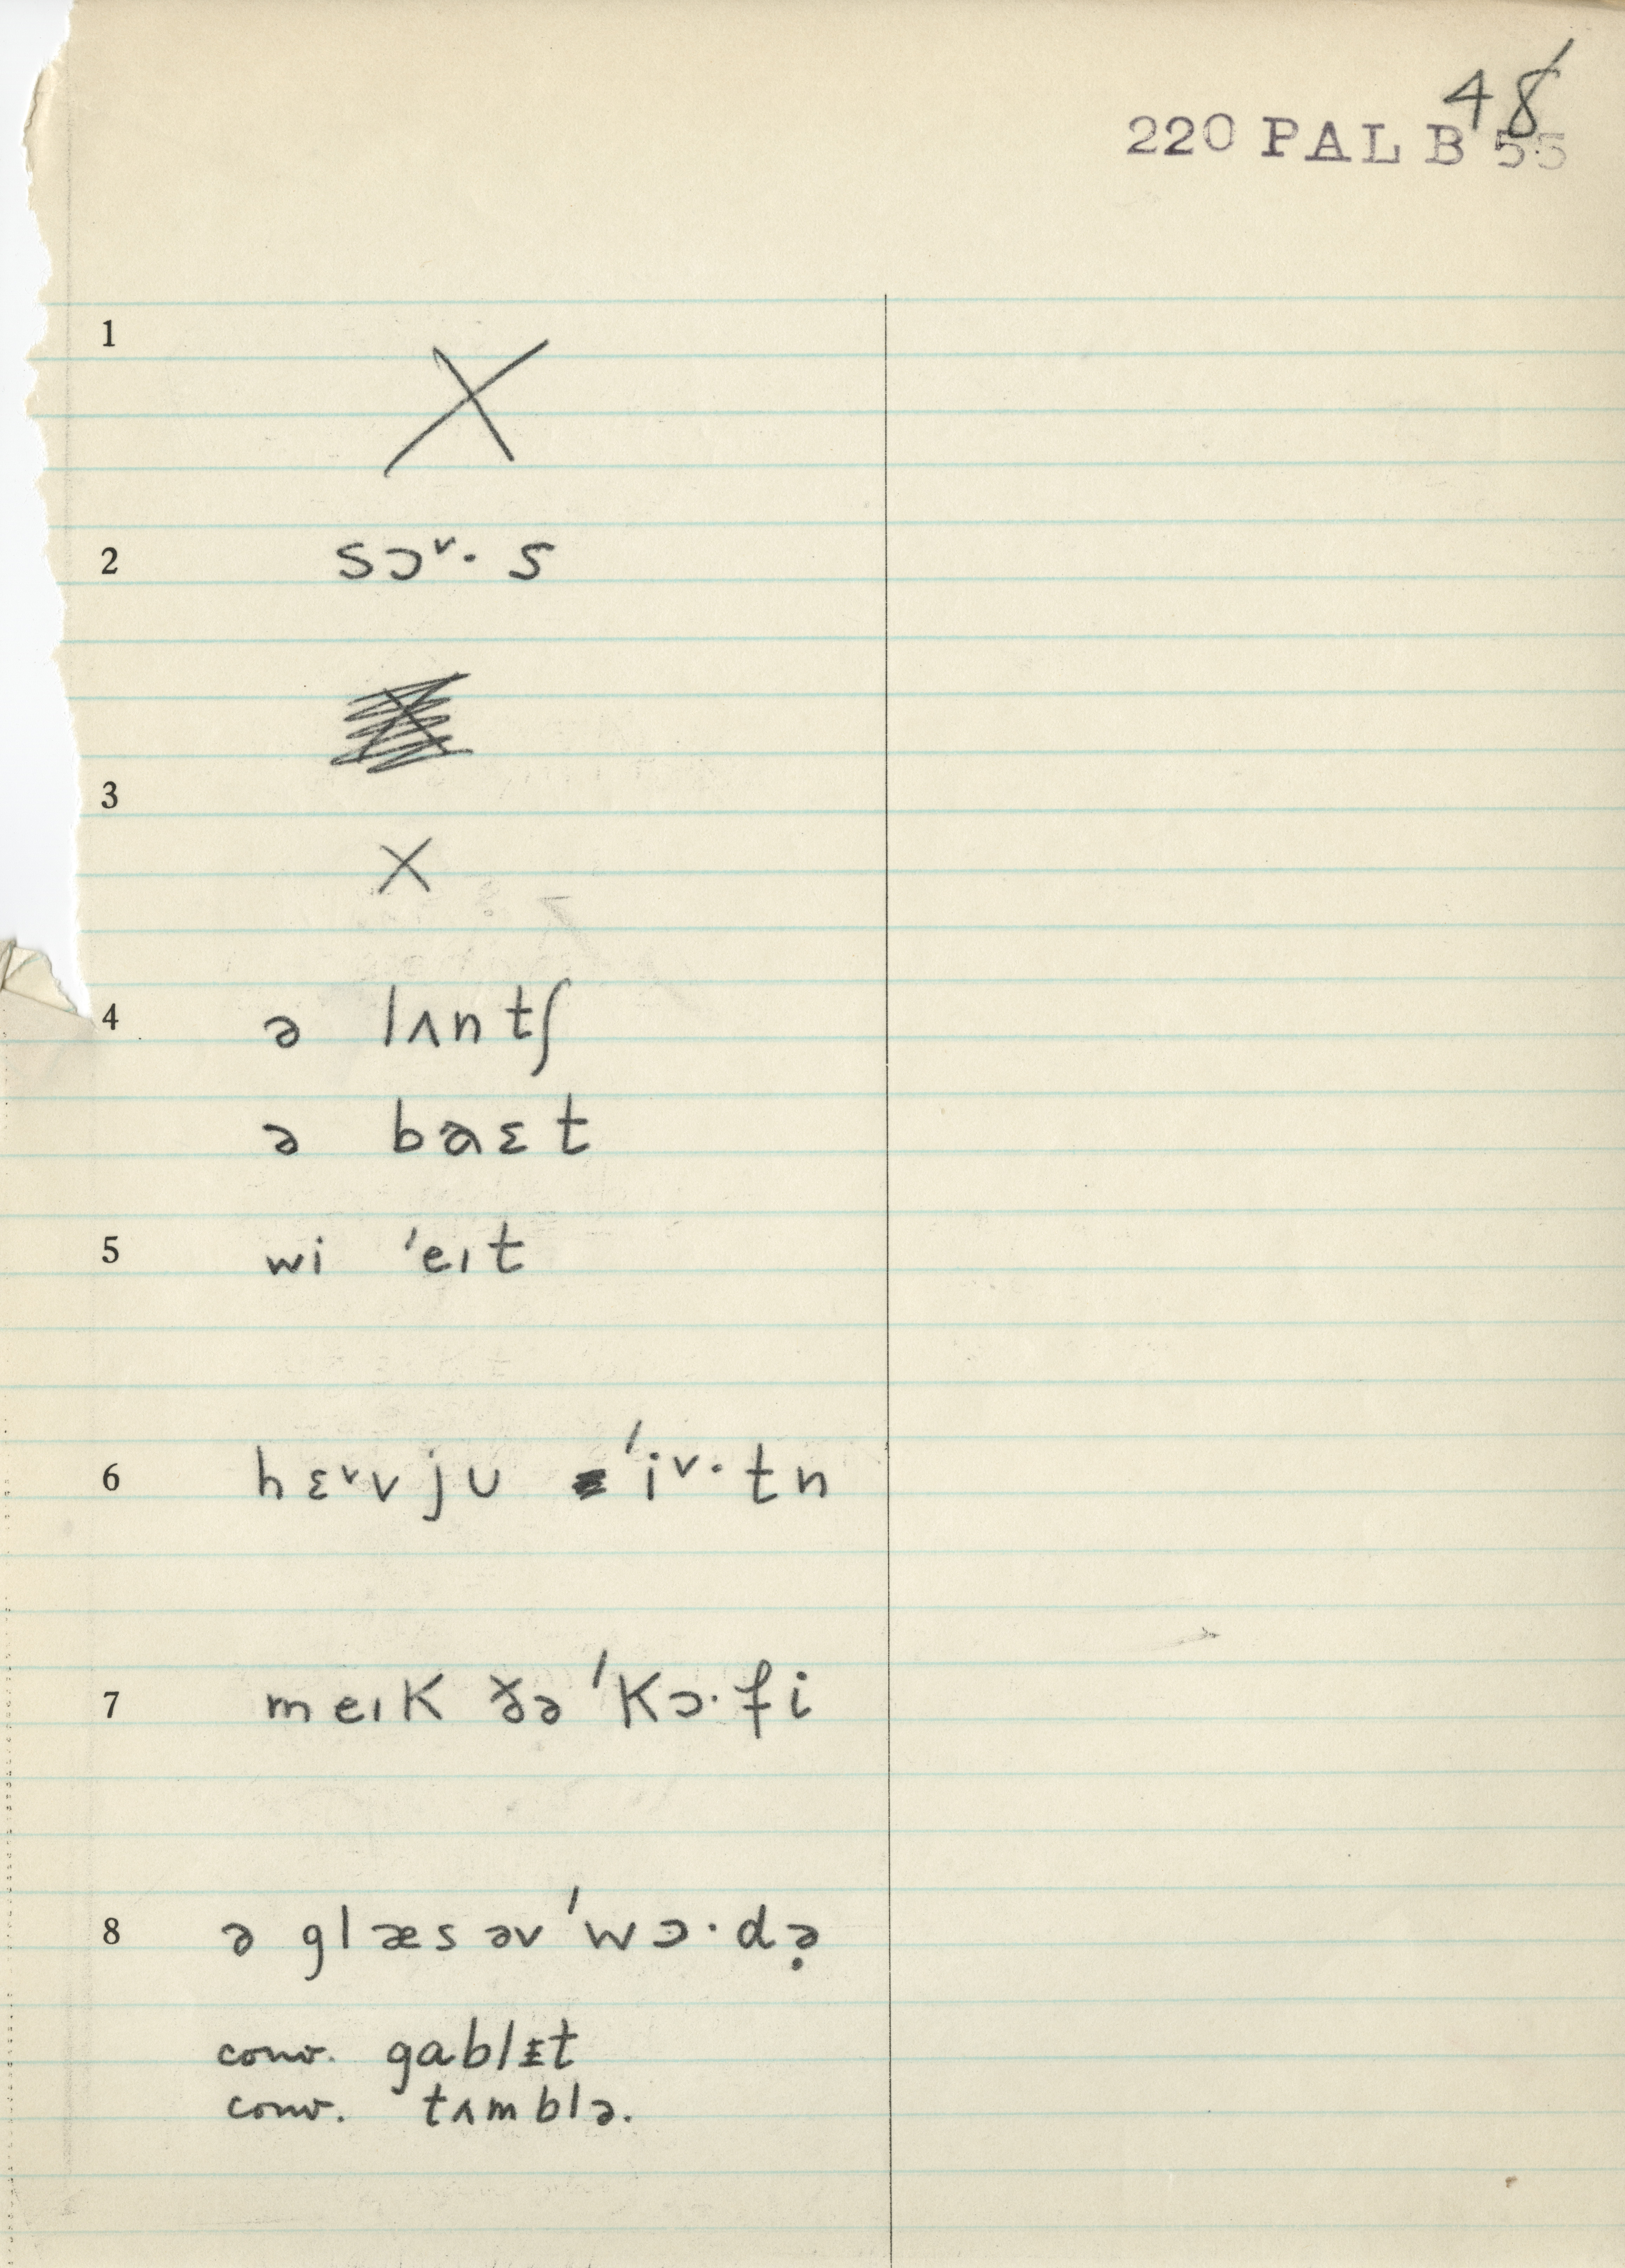 48
220 PAL B 55
1 X
2 sɔ˅· s
3 X
4 ə lʌntʃ
ə baɛt
5 wi ˈeɪt
6 hɛ˅v ju ˈi˅·tn
7 meɪk ðə ˈkɔ·fi
8 ə glæs əv ˈwɔ·də̣
conv. gablɪt
conv. tʌmblə.